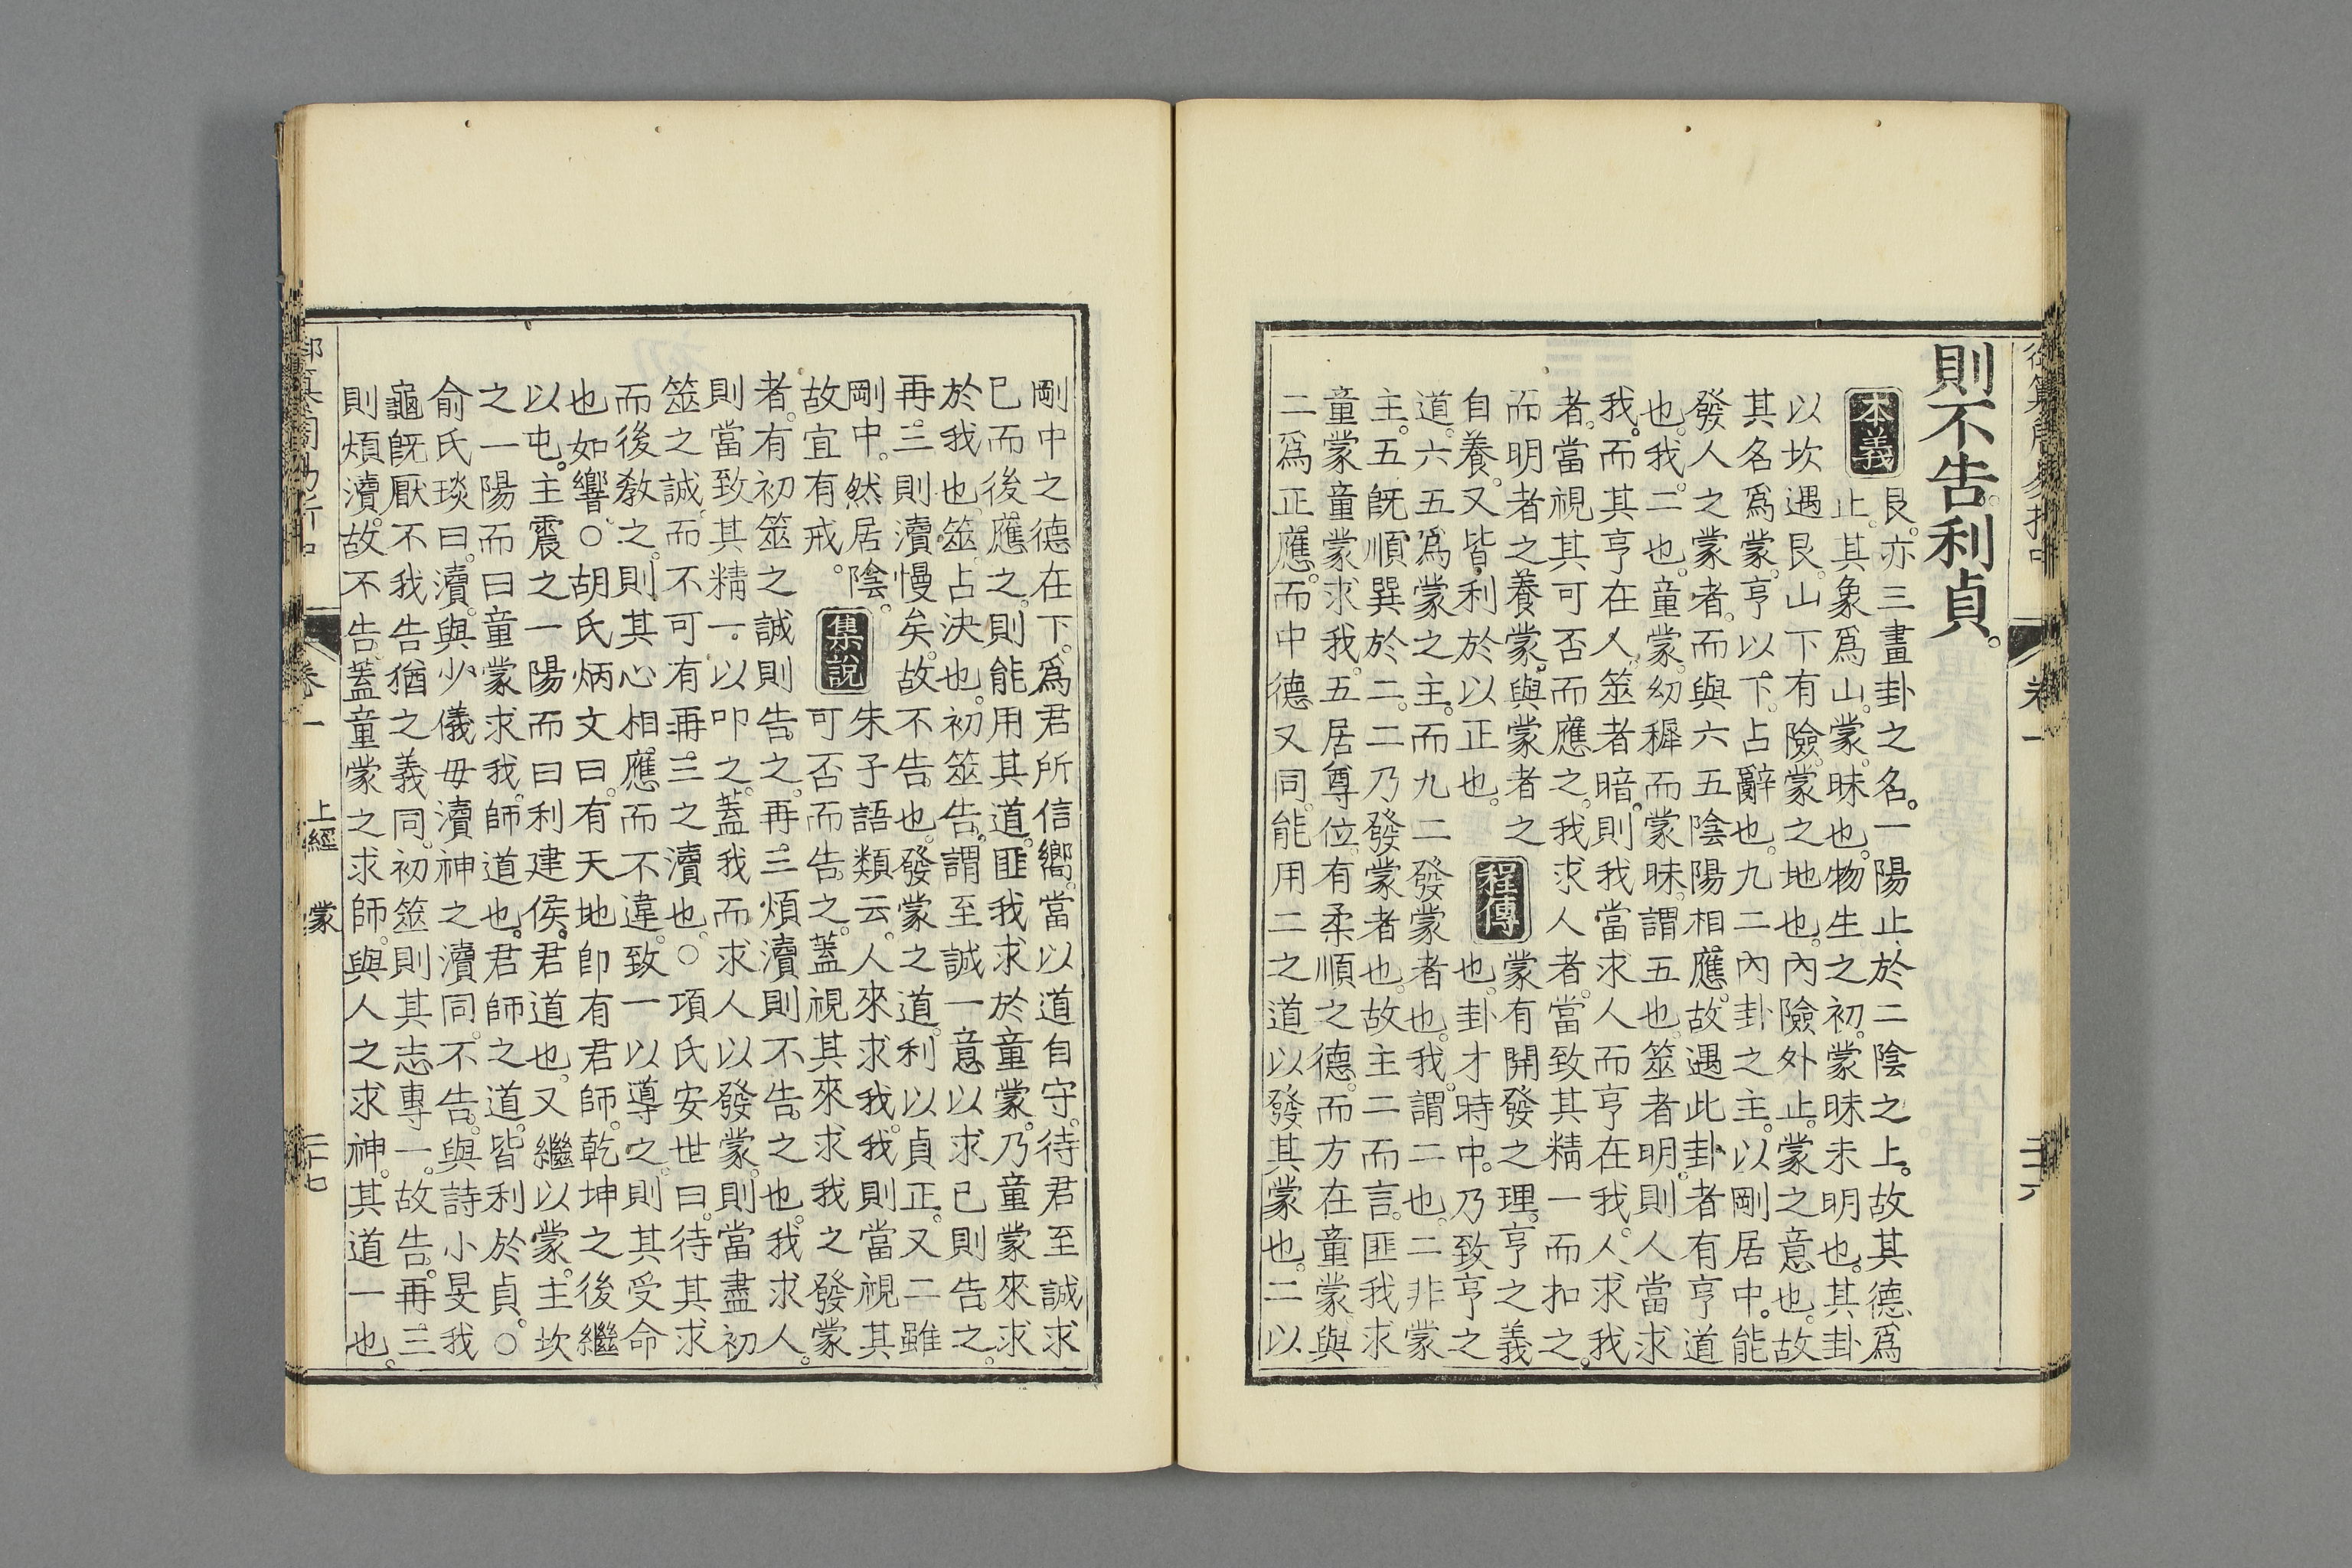 御纂周易折中 卷一 二十六
則不告利貞。
本義 艮。亦三畫卦之名。一陽止於二陰之上。故其德爲
止。其象爲山。蒙。昧也。物生之初。蒙昧未明也。其卦
以坎遇艮。山下有險。蒙之地也。內險外止。蒙之意也。故
其名爲蒙。亨以下。占辭也。九二內卦之主。以剛居中。能
發人之蒙者。而與六五陰陽相應。故遇此卦者。有亨道
也。我。二也。童蒙。幼穉而蒙昧。謂五也。筮者明。則人當求
我。而其亨在人。筮者暗。則我當求人。而亨在我。人求我
者。當視其可否而應之。我求人者。當致其精一而扣之。
而明者之養蒙。與蒙者之
自養。又皆利於以正也。
程傳 蒙有開發之理。亨之義
也。卦才時中。乃致亨之
道。六五爲蒙之主。而九二發蒙者也。我。謂二也。二非蒙
主。五旣順巽於二。二乃發蒙者也。故主二而言。匪我求
童蒙童蒙求我。五居尊位。有柔順之德。而方在童蒙。與
二爲正應。而中德又同。能用二之道以發其蒙也。二以
剛中之德在下。爲君所信嚮。當以道自守。待君至誠求
已而後應之。則能用其道。匪我求於童蒙。乃童蒙來求
於我也。筮。占決也。初筮告。謂至誠一意以求已則告之。
再三則瀆慢矣。故不告也。發蒙之道。利以貞正。又二雖
剛中。然居陰。
故宜有戒。
集說 朱子語類云。人來求我。我則當視其
可否而告之。蓋視其來求我之發蒙
者。有初筮之誠則告之。再三煩瀆則不告之也。我求人。
則當致其精一。以叩之。蓋我而求人以發蒙。則當盡初
筮之誠。而不可有再三之瀆也。○項氏安世曰。待其求
而後敎之。則其心相應而不違。致一以導之。則其受命
也如響。○胡氏炳文曰。有天地卽有君師。乾坤之後繼
以屯。主震之一陽而曰利建侯。君道也。又繼以蒙。主坎
之一陽而曰童蒙求我。師道也。君師之道。皆利於貞。○
俞氏琰曰。瀆。與少儀毋瀆神之瀆同。不告。與詩小旻我
龜旣厭不我告猶之義同。初筮則其志專一。故告。再三
則煩瀆。故不告。蓋童蒙之求師。與人之求神。其道一也。
御纂周易折中 卷一 上經 蒙 二十七